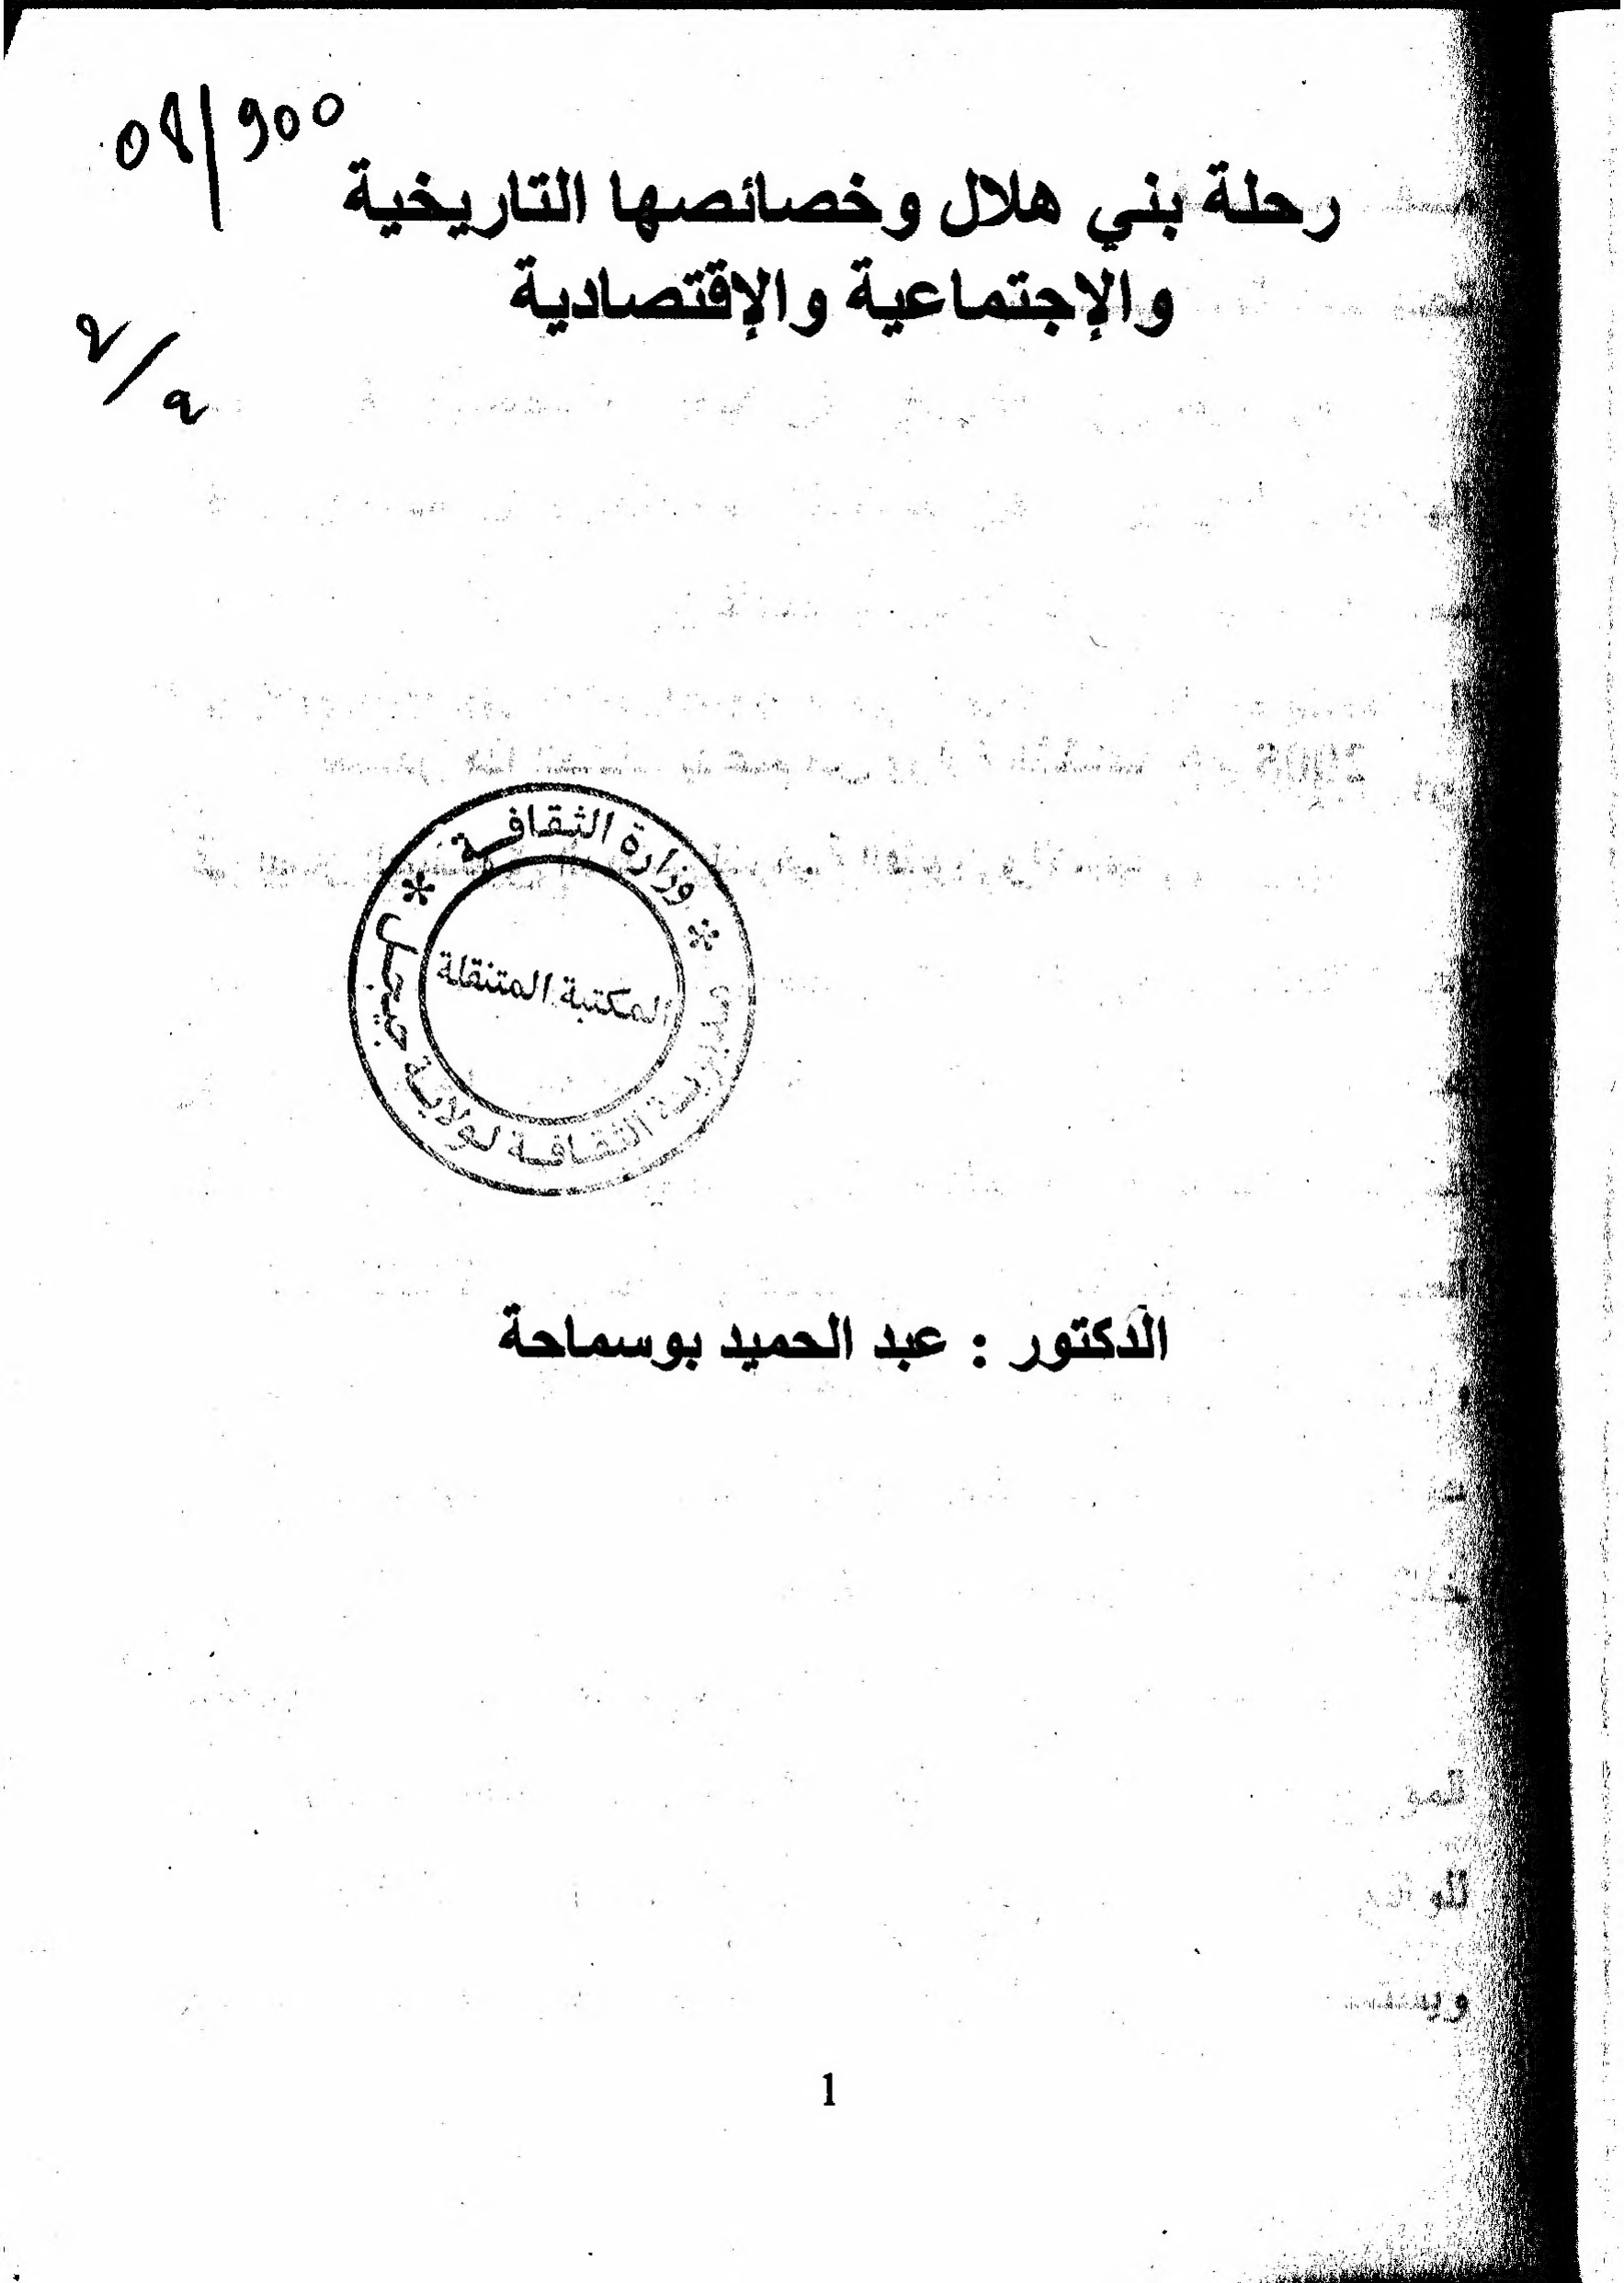 08/900
رحلة بني هلال وخصائصها التاريخية
والإجتماعية والإقتصادية
2/2
* وزارة الثقافة *
المكتبة المتنقلة
مديرية الثقافة لولاية جيجل
الدكتور : عبد الحميد بوسماحة
1